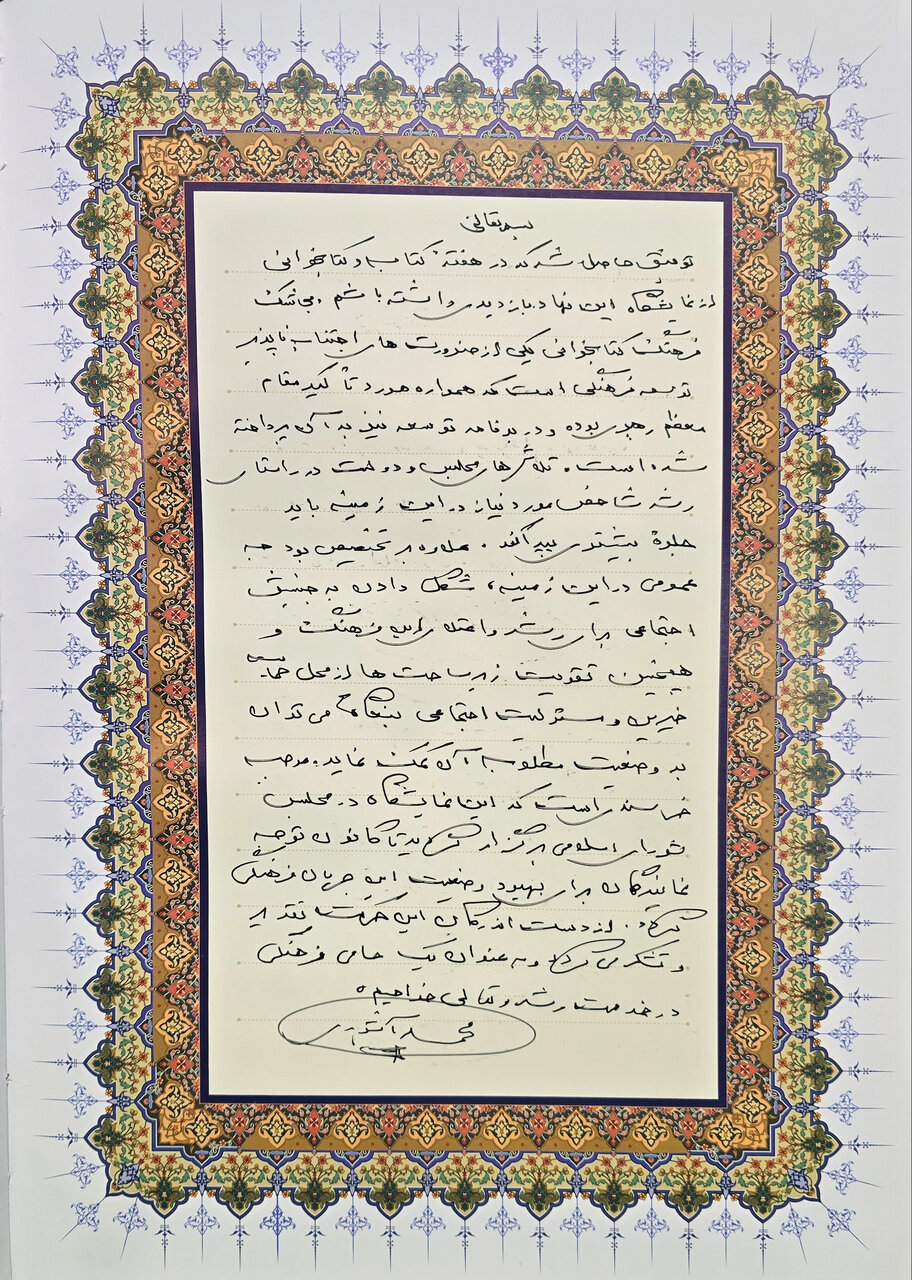 بسمه تعالی
توفیق حاصل شد که در هفته کتاب و کتابخوانی
از نمایشگاه این نهاد بازدیدی داشته باشم. بی شک
فرهنگ کتابخوانی یکی از ضرورت های اجتناب ناپذیر
توسعه فرهنگی است که همواره مورد تأکید مقام
معظم رهبری بوده و در برنامه توسعه نیز به آن پرداخته
شده است. تلاش های مجلس و دولت در راستای
رشد شاخص مورد نیاز در این زمینه باید
جلوۀ بیشتری پیدا کند. علاوه بر تخصیص بودجه
عمومی در این زمینه، شکل دادن به جنبش
اجتماعی برای رشد و اعتلای این فرهنگ و
همچنین تقویت زیرساخت ها از محل
خیرین و مسئولیت اجتماعی بنگاه ها می توان
به وضعیت مطلوب آن کمک نماید. موجب
خرسندی است که این نمایشگاه در مجلس
شورای اسلامی برگزار گردید تا کانون توجه
نمایندگان برای بهبود وضعیت این جریان فرهنگی
گردد. از دست اندرکاران این حرکت تقدیر
و تشکر می کنم و به عنوان یک حامی فرهنگی
در خدمت رشد و تعالی خواهیم
محمد